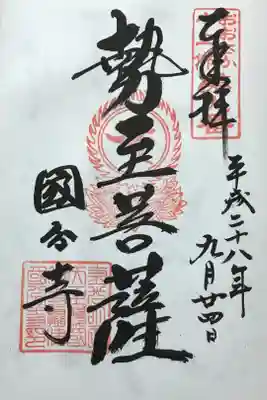 奉拝
おおさか
平成二十八年
九月廿四日
勢至菩薩
國分寺